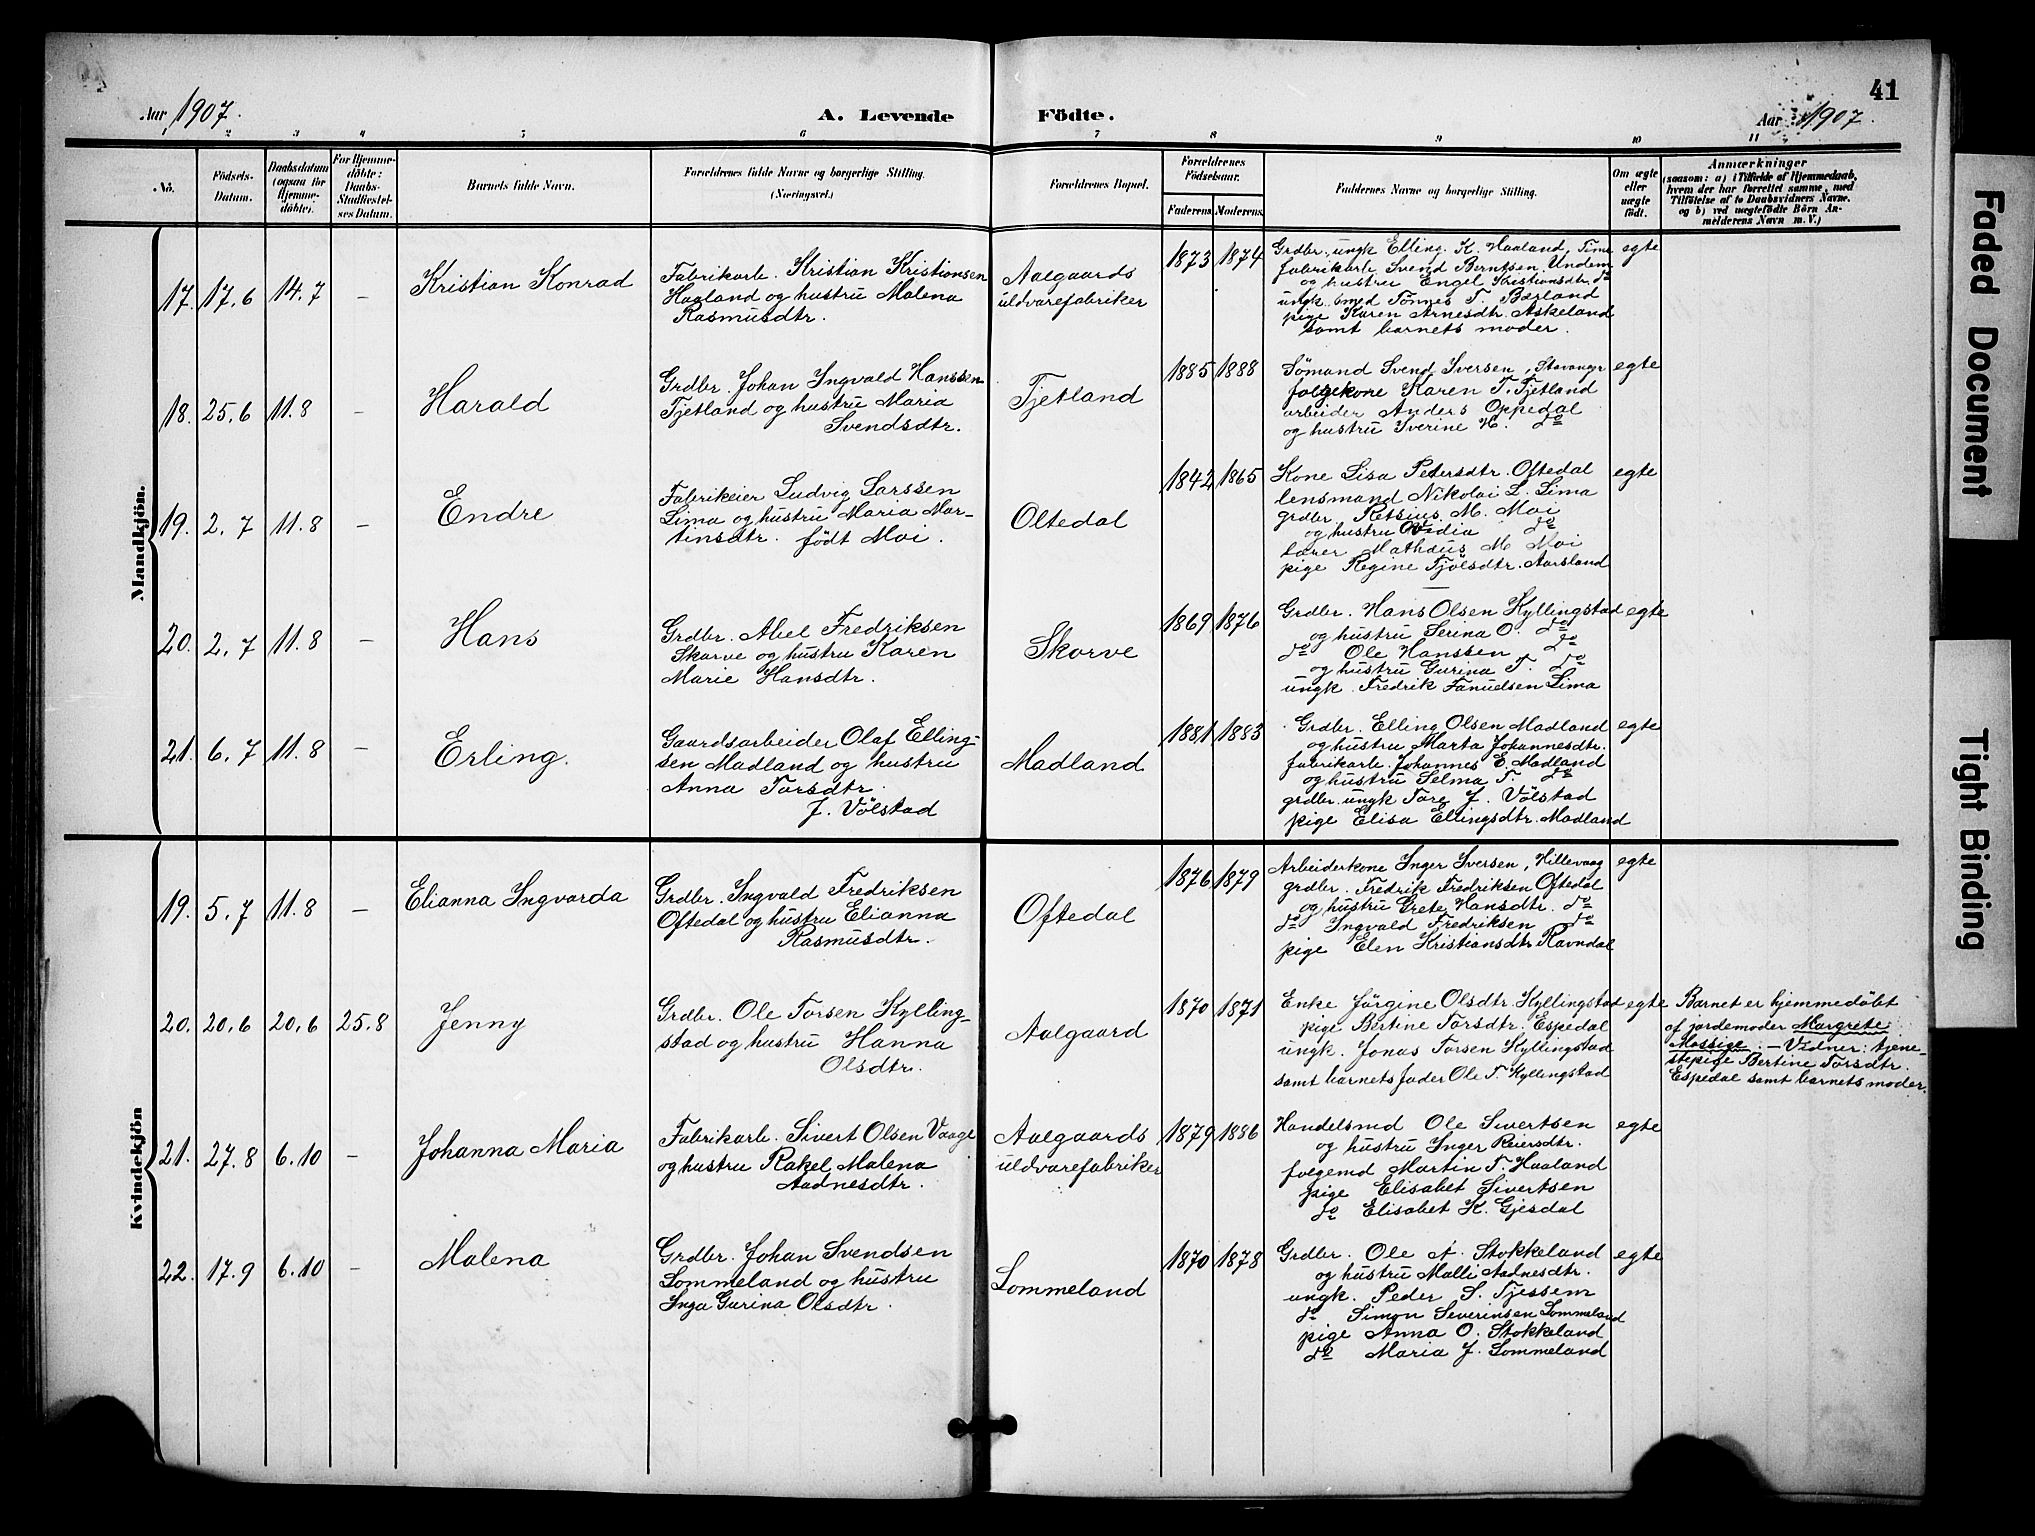 41
Aar 1907.
A. Levende Födte.
Aar 1907.
1 2 3 4 5 6 7 8 9 10 11
No.
Födsels-Datum.
Daabsdatum (ogsaa for Hjemme-döbte).
For Hjemme-döbte: Daabs-Stadfæstel-ses Datum.
Barnets fulde Navn.
Forældrenes fulde Navne og borgerlige Stilling.
(Næringsvei.)
Forældrenes Bopæl.
Forældrenes Födselsaar.
Faderens. Moderens.
Faddernes Navne og borgerlige Stilling.
Om ægte eller uægte födt.
Anmærkninger
(saasom: a) i Tilfælde af Hjemmedaab,
hvem der har forrettet samme, med
Tilföielse af to Daabsvidners Navne.
og b) ved uægtefödte Börn An-
melderens Navn m. V.)
Mandkjön.
17. 17.6 14.7 – Kristian Konrad
Fabrikarb. Kristian Kristiansen
Haaland og hustru Malena
Rasmusdtr.
Aalgaards
uldvarefabriker
1873 1874
Grdbr. ungk Elling K. Haaland, Time
fabrikarb. Svend Berntsen Undem
og hustru Engel Kristiansdtr. do
ungk. smed Tönnes T. Bærland
pige Karen Arnesdtr. Askeland
samt barnets moder.
egte
18. 25.6 11.8 – Harald
Grdbr. Johan Ingvald Hanssen
Tjetland og hustru Maria
Svendsdtr.
Tjetland
1885 1888
Sömand Svend Iversen, Stavanger
folgekone Karen T. Tjetland
arbeider Anders Oppedal
og hustru Iverine H. do
egte
19. 2.7 11.8 – Endre
Fabrikeier Ludvig Larssen
Lima og hustru Maria Mar-
tinsdtr. født Moi.
Oltedal
1842 1865
Kone Lisa Pedersdtr. Oftedal
lensmand Nikolai L. Lima
grdbr. Retsius M. Moi
og hustru Ovidia do
lærer Mathæus M. Moi
pige Regine Tjölsdtr. Aarsland
egte
20. 2.7 11.8 – Hans
Grdbr. Abel Fredriksen
Skorve og hustru Karen
Marie Hansdtr.
Skorve
1869 1876
Grdbr. Hans Olsen Kyllingstad
og hustru Serina O. do
do Ole Hanssen do
og hustru Gurina T. do
ungk. Fredrik Fanuelsen Lima
egte
21. 6.7 11.8 – Erling.
Gaardsarbeider Olaf Elling-
sen Madland og hustru
Anna Torsdtr.
f. Völstad
Madland
1881 1883
Grdbr. Elling Olsen Madland
og hustru Marta Johannesdtr.
fabrikarb. Johannes E. Madland
og hustru Selma T. do
grdbr. ungk Tore J. Völstad
pige Elisa Ellingsdtr. Madland
egte
Kvindekjön
19. 5.7 11.8 – Elianna Ingvarda
Grdbr. Ingvald Fredriksen
Oftedal og hustru Elianna
Rasmusdtr.
Oftedal
1876 1879
Arbeiderkone Inger Iversen, Hillevaag
grdbr. Fredrik Fredriksen Oftedal
og hustru Grete Hansdtr. do
do Ingvald Fredriksen do
pige Elen Kristiansdtr Ravndal
egte
20. 20.6 20.6 25.8 Jenny
Grdbr. Ole Torsen Kylling-
stad og hustru Hanna
Olsdtr.
Aalgaard
1870 1871
Enke Jörgine Olsdtr. Kyllingstad
pige Bertine Torsdtr. Espedal
ungk. Jonas Torsen Kyllingstad
samt barnets fader Ole T. Kyllingstad
egte
Barnet er hjemmedöbt
af jordemoder Margrete
Mossige. – Vidner: tjene-
stepige Bertine Torsdtr.
Espedal samt barnets moder.
21. 27.8 6.10 – Johanna Maria
Fabrikarb. Sivert Olsen Vaage
og hustru Rakel Malena
Aadnesdtr.
Aalgaards
uldvarefabriker
1879 1886
Handelsmd Ole Sivertsen
og hustru Inger Reiersdtr.
folgemd Martin T. Haaland
pige Elisabet Sivertsen
do Elisabet K. Gjesdal
egte
22. 17.9 6.10 – Malena
Grdbr. Johan Svendsen
Lommeland og hustru
Inga Gurina Olsdtr.
Lommeland
1870 1878
Grdbr. Ole A. Stokkeland
og hustru Malli Aadnesdtr.
ungk. Peder S. Tjessem
do Simon Severinsen Lommeland
pige Anna O. Stokkeland
do Maria J. Lommeland
egte
Faded Document
Tight Binding